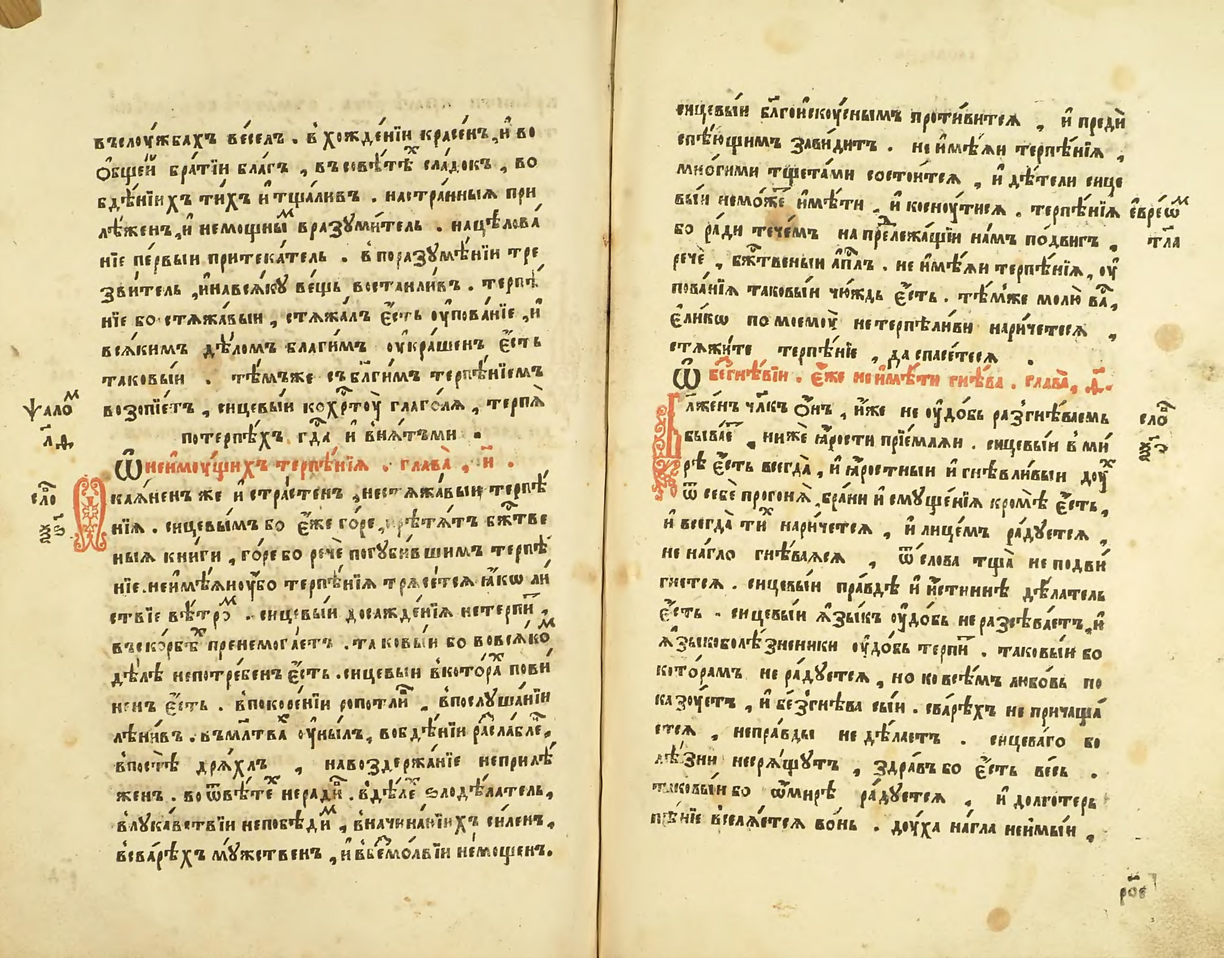 въслꙋжбахъ ве́селъ . в̾хожде́нїи красе́нъ, и҆ во
ѻ҆́бщей бра́тїи бла́гъ , въсовѣ́тѣⷯ сла́докъ , во
бдѣ́нїихъ ти́хъ и҆ тщали́въ . настра́нныѧ при
лѣ́женъ, и҆ немощны́ⷨ вразꙋми́тель . нацѣ́лова́
нїе пе́рвыи притека́тель . в̾поразꙋмѣ́нїи тре́
зви́тель , и҆навсѧ́кꙋ ве́щь воста́нливъ . терпѣ́
нїе бо стѧжа́выи , стѧжа́лъ є҆́сть ᲂу҆пова́нїе , и҆
всѧ́кимъ дѣ́ломъ благи́мъ ᲂу҆кра́шенъ є҆́сть
таковы́и . тѣ́мъже съ бл҃ги́мъ терпѣ́нїемъ
возопїе́тъ , сицевы́и кох҃рⷭтꙋ̀ глаго́лѧ , терпѧ̀
потерпѣ́хъ гдⷭ҇а и҆ внѧ́тъми .
ѱало́ⷨ
л҃д
Ѡ҆ неи҆мꙋ́щихъ терпѣ́нїѧ . глава̀ , н҃ .
сло́
Ѻ҆каѧ́ненъ же и҆ стра́стенъ , нестѧжа́выи терпѣ́
нїѧ . сицевы́мъ бо є҆́же го́ре, прѣтѧ́тъ бжⷭ҇тве
ныѧ кни́ги , го́ре бо речѐ погꙋби́вшимъ терпѣ́
нїе. неи҆мѣ́ѧиᲂу҆́бо терпѣ́нїѧ трѧсе́тсѧ ꙗ҆́кѡ ли́
ствїе вѣ́тро́ⷨ . сицевы́и досажде́нїѧ нетерпи́ⷮ ,
въско́рбеⷯ пренемога́етъ . таковы́и бо вовсѧ́ко́ⷨ
дѣ́лѣ непотре́бенъ є҆́сть . сицевы́и вкото́раⷯ пови́
ненъ є҆́сть . в̾покоре́нїи ропотли́ⷡ , в̾послꙋша́нїи
лѣни́въ . въмл҃тваⷯ ᲂу҆ны́лъ, вобдѣ́нїи ра́слабле́ⷩ,
в̾постѣ̀ дрѧ́хлъ , навоздержа́нїе неприлѣ́
женъ . во ѿвѣ́тѣⷯ неради́ⷡ . в̾дѣ́лѣⷯ ѕлодѣ́латель,
в̾лꙋка́вствїи непобѣди́ⷨ , в̾начина́нїихъ си́ленъ,
в̾сва́рѣхъ мꙋ́жественъ , и҆ в̾безмо́лвїи немо́щенъ.
сицевы́и бл҃гои҆скꙋ́снымъ проти́витсѧ , и҆ предѝ
спѣ́ющимъ зави́дитъ . неи҆мѣ́ѧи терпѣ́нїѧ ,
мно́гими тщета́ми состои́тсѧ , и҆ дѣ́тели сице
вы́и немо́жеⷮ и҆мѣ́ти , и҆ коснꙋ́тисѧ . терпѣ́нїѧ
бо ра́ди тече́мъ напре́лежа́щїи на́мъ по́двигъ ,
речѐ , бжⷭ҇твеныи а҆пⷭ҇лъ . неи҆мѣ́ѧи терпѣ́нїѧ, ᲂу҆
пова́нїѧ таковы́и чю́ждь є҆́сть . тѣ́мже молю̀ ва́ⷭ,
є҆ли́кѡ помоемꙋ̀ нетерпѣли́ви нарица́етесѧ ,
стѧжи́те терпѣ́нїе , да спасе́тесѧ .
є҆вре́ѡⷨ
т҃ла
Ѡ҆ безгнѣ́вїи . є҆́же неи҆мѣ́ти гнѣ́ва . глава̀, д҃.
Блаже́нъ чл҃къ ѻ҆́нъ , и҆́же не ᲂу҆до́бь разгнѣ́ваемь
быва́еⷮ , нижѐ ꙗ҆́рости прїе́млѧи . сицевы́и в̾ ми́
рѣ є҆́сть всегда̀ , и҆ ꙗ҆́ростныи и҆ гнѣвли́выи дꙋ́ⷯ
ѿ себѐ прогонѧ̀ , бра́ни и҆ смꙋще́нїѧ кромѣ̀ є҆́сть,
и҆ всегда̀ ти́ⷯ нарица́етсѧ , и҆ лице́мъ ра́дꙋетсѧ ,
не на́гло гнѣ́ваѧсѧ , ѿ сло́ва тща̀ не подви́
гнетсѧ . сицевы́и пра́вдѣ и҆ и҆́стиннѣ дѣ́латель
є҆́сть . сицевы́и ѧ҆зы́къ ᲂу҆до́бь не разсѣва́етъ, и҆
ѧ҆зыкоболѣ́зненики ᲂу҆до́бь терпи́ⷮ . таковы́и бо
кото́рамъ не ра́дꙋетсѧ , но ко всѣ́мъ любо́вь по
ка́зꙋетъ , и҆ безгнѣ́ва сы́и . сва́рѣхъ не причаща́
етсѧ , непра́вды не дѣ́лаетъ . сицева́го бо
лѣ́зни несрѧ́щꙋтъ , здра́въ бо є҆́сть ве́сь .
таковы́и бо ѡ҆ми́рѣ ра́дꙋетсѧ , и҆ долготерь
пѣ́нїе вселѧ́етсѧ во́нь . дꙋ́ха на́гла неи҆мы́и ,
сло́